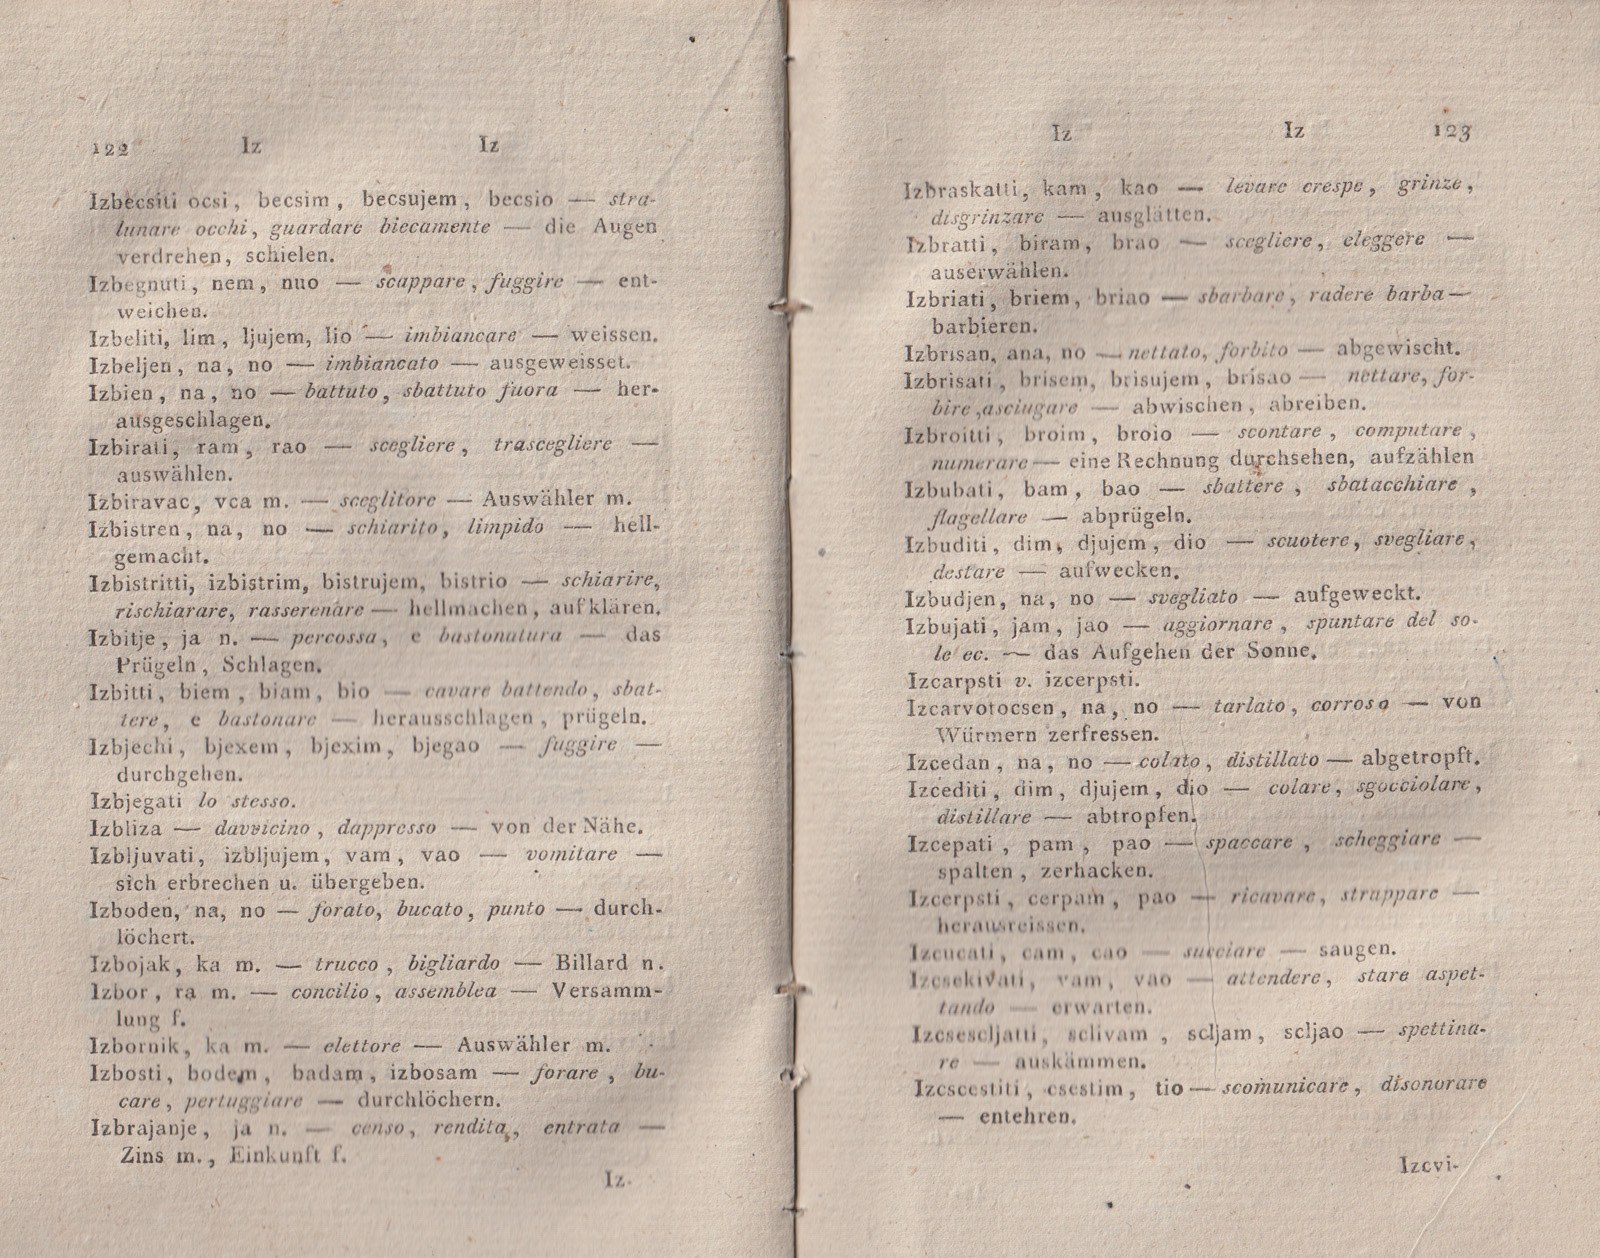 122 Iz Iz
Izbecsiti ocsi, becsim, becsujem, becsio — stra-
lunare occhi, guardare biecamente — die Augen
verdrehen, schielen.
Izbegnuti, nem, nuo — scappare, fuggire — ent-
weichen.
Izbeliti, lim, ljujem, lio — imbiancare — weissen.
Izbeljen, na, no — imbiancato — ausgeweisset.
Izbien, na, no — battuto, sbattuto fuora — her-
ausgeschlagen.
Izbirati, ram, rao — scegliere, trascegliere —
auswählen.
Izbiravac, vca m. — sceglitore — Auswähler m.
Izbistren, na, no — schiarito, limpido — hell-
gemacht.
Izbistritti, izbistrim, bistrujem, bistrio — schiarire,
rischiarare, rasserenare — hellmachen, aufklären.
Izbitje, ja n. — percossa, e bastonatura — das
Prügeln, Schlagen.
Izbitti, biem, biam, bio — cavare battendo, sbat-
tere, e bastonare — herausschlagen, prügeln.
Izbjechi, bjexem, bjexim, bjegao — fuggire —
durchgehen.
Izbjegati lo stesso.
Izbliza — davvicino, dappresso — von der Nähe.
Izbljuvati, izbljujem, vam, vao — vomitare —
sich erbrechen u. übergeben.
Izboden, na, no — forato, bucato, punto — durch-
löchert.
Izbojak, ka m. — trucco, bigliardo — Billard n.
Izbor, ra m. — concilio, assemblea — Versamm-
lung f.
Izbornik, ka m. — elettore — Auswähler m.
Izbosti, bodem, badam, izbosam — forare, bu-
care, pertuggiare — durchlöchern.
Izbrajanje, ja n. — censo, rendita, entrata —
Zins m., Einkunft f.
Iz-
Iz Iz 123
Izbraskatti, kam, kao — levare crespe, grinze,
disgrinzare — ausglätten.
Izbratti, biram, brao — scegliere, eleggere —
auserwählen.
Izbriati, briem, briao — sbarbare, radere barba —
barbieren.
Izbrisan, ana, no — nettato, forbito — abgewischt.
Izbrisati, brisem, brisujem, brisao — nettare, for-
bire, asciugare — abwischen, abreiben.
Izbroitti, broim, broio — scontare, computare,
numerare — eine Rechnung durchsehen, aufzählen
Izbubati, bam, bao — sbattere, sbatacchiare,
flagellare — abprügeln.
Izbuditi, dim, djujem, dio — scuotere, svegliare,
destare — aufwecken.
Izbudjen, na, no — svegliato — aufgeweckt.
Izbujati, jam, jao — aggiornare, spuntare del so-
le ec. — das Aufgehen der Sonne.
Izcarpsti v. izcerpsti.
Izcarvotocsen, na, no — tarlato, corroso — von
Würmern zerfressen.
Izcedan, na, no — colato, distillato — abgetropft.
Izcediti, dim, djujem, dio — colare, sgocciolare,
distillare — abtropfen.
Izcepati, pam, pao — spaccare, scheggiare —
spalten, zerhacken.
Izcerpsti, cerpam, pao — ricavare, strappare —
herausreissen.
Izcucati, cam, cao — succiare — saugen.
Izcsekivati, vam, vao — attendere, stare aspet-
tando — erwarten.
Izcsescljatti, sclivam, scljam, scljao — spettina-
re — auskämmen.
Izcscestiti, csestim, tio — scomunicare, disonorare
— entehren.
Izcvi-